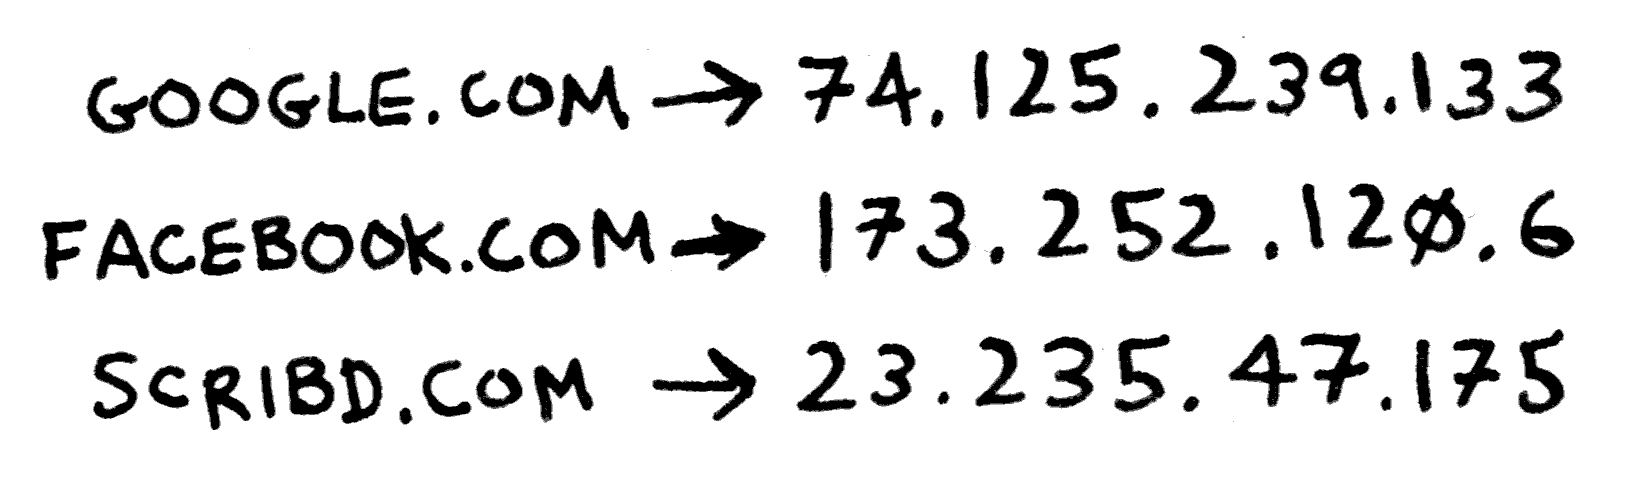 GOOGLE.COM → 74.125.239.133
FACEBOOK.COM → 173.252.120.6
SCRIBD.COM → 23.235.47.175